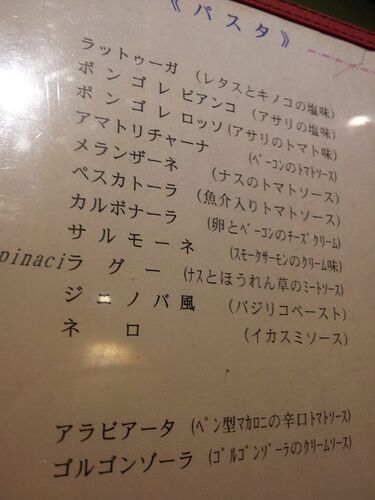 《パスタ》
ラットゥーガ (レタスとキノコの塩味)
ボンゴレ ビアンコ (アサリの塩味)
ボンゴレ ロッソ(アサリのトマト味)
アマトリチャーナ (ベーコンのトマトソース)
メランザーネ (ナスのトマトソース)
ペスカトーラ (魚介入りトマトソース)
カルボナーラ (卵とベーコンのチーズクリーム)
サルモーネ (スモークサーモンのクリーム味)
pinaciラグー (ナスとほうれん草のミートソース)
ジェノバ風 (バジリコペースト)
ネロ (イカスミソース)
アラビアータ (ペン型マカロニの辛口トマトソース)
ゴルゴンゾーラ (ゴルゴンゾーラのクリームソース)